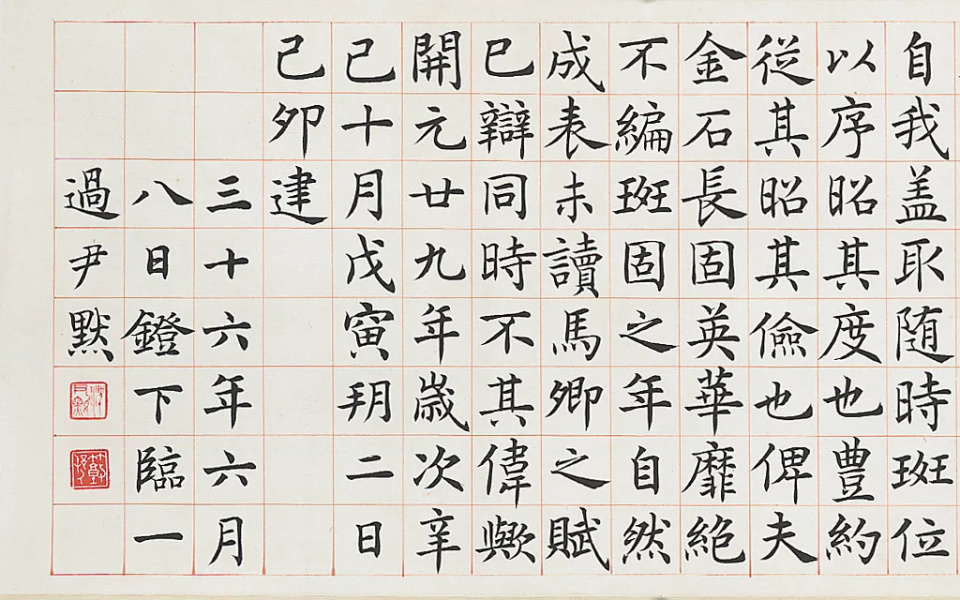 自我盖取随時班位
以序昭其度也豊約
從其昭其儉也俾夫
金石長固英華靡絶
不編班固之年自然
成表未讀馬卿之賦
已辯同時不其偉歟
開元廿九年歲次辛
巳十月戊寅朔二日
己卯建
三十六年六月
八日鐙下臨一
過尹默